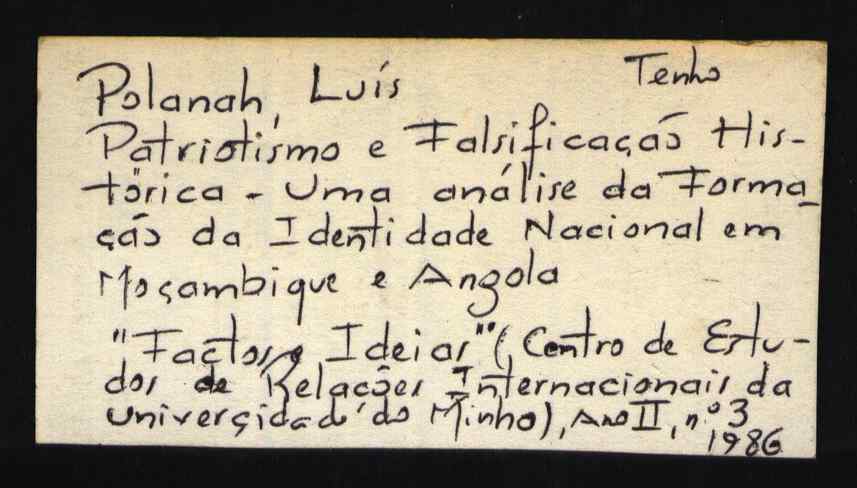 Polanah, Luís Tenho
Patriotismo e Falsificação His-
tórica - Uma análise da Forma-
ção da Identidade Nacional em
Moçambique e Angola
"Factos e Ideias" (Centro de Estu-
dos de Relações Internacionais da
Universidad do Minho), Ano II, nº 3
1986